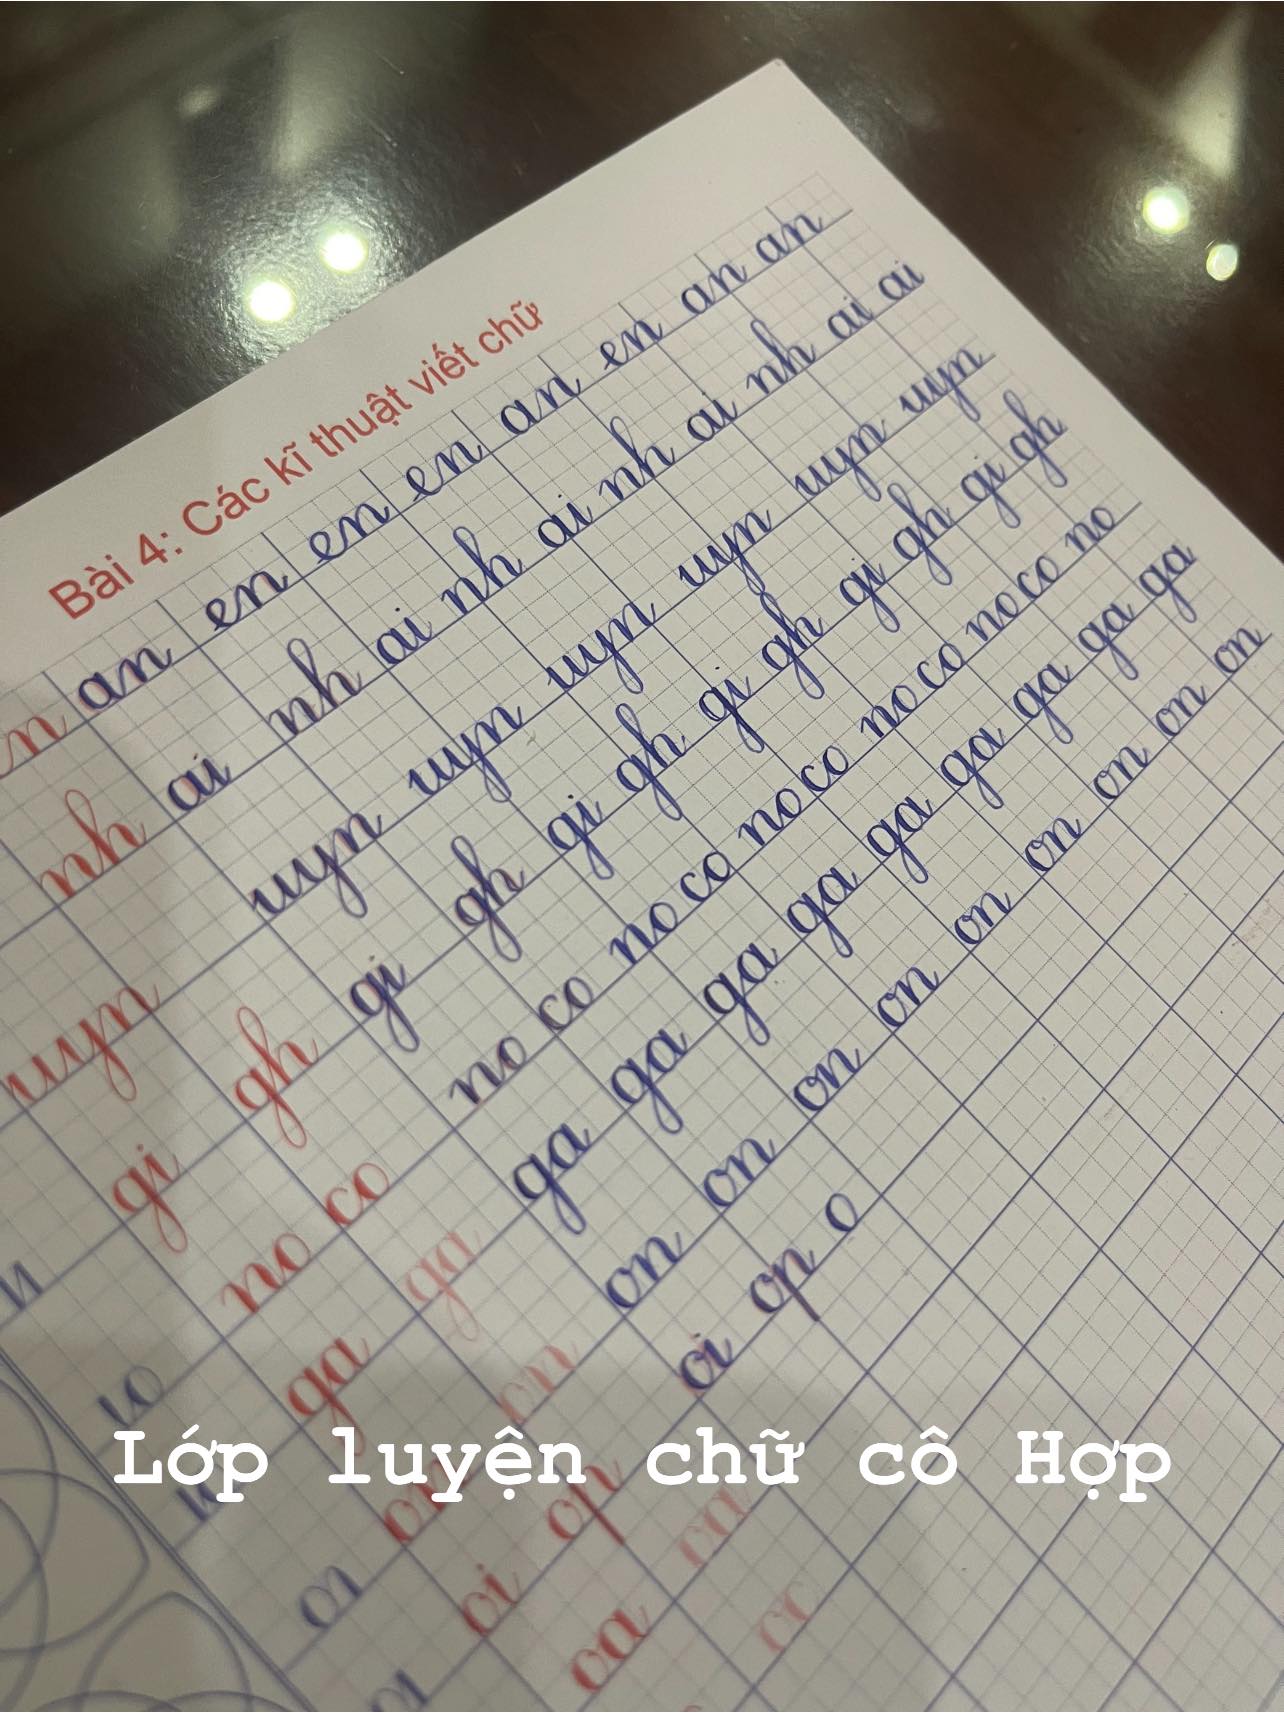 Bài 4: Các kĩ thuật viết chữ
an en en en an en an an
nh ai nh ai nh ai nh ai nh ai ai
uyn uyn uyn uyn uyn uyn uyn
gi gh gi gh gi gh gi gh gi gh gi gh
no co no co no co no co no co no co no
ga ga ga ga ga ga ga ga ga ga ga
on on on on on on on on on on
oi op oi op o
oa oa
Lớp luyện chữ cô Hợp